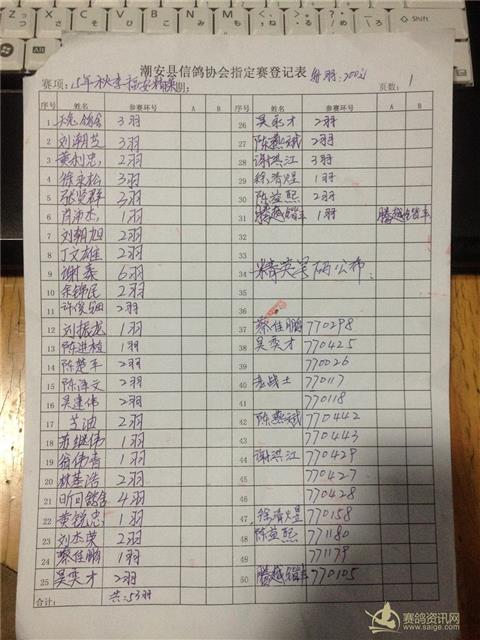 潮安县信鸽协会指定赛登记表
赛项: 15年秋季 期: 页数: 1
序号 姓名 参赛环号 A B 序号 姓名 参赛环号 A B
1 鸽舍 3羽
2 刘潮芝 3羽
3 黄利忠 2羽
4 徐永松 3羽
5 张贤群 3羽
6 1羽
7 刘朝旭 2羽
8 丁文雄 2羽
9 谢泰 6羽
10 余锦民 2羽
11 2羽
12 刘振龙 1羽
13 陈进植 1羽
14 陈楚平 2羽
15 陈泽文 2羽
16 吴建伟 2羽
17 2羽
18 苏继伟 1羽
19 翁伟青 1羽
20 林基浩 2羽
21 鸽舍 4羽
22 黄锐忠 1羽
23 刘杰荣 2羽
24 蔡佳鹏 1羽
25 吴奕才 2羽
合计: 共:53羽
26 吴永才 2羽
27 陈燕斌 2羽
28 谢洪江 3羽
29 徐清煌 1羽
30 陈益熙 2羽
31 腾越 1羽 腾越
32
33
34 精英号码公布
35
36
37 蔡佳鹏 770298
38 吴奕才 770425
39 770026
40 老战士 770117
41 770118
42 陈燕斌 770442
43 770443
44 谢洪江 770429
45 770427
46 770428
47 徐清煌 770158
48 陈益熙 771180
49 771179
50 腾越 770105
赛鸽资讯网
www.saige.com